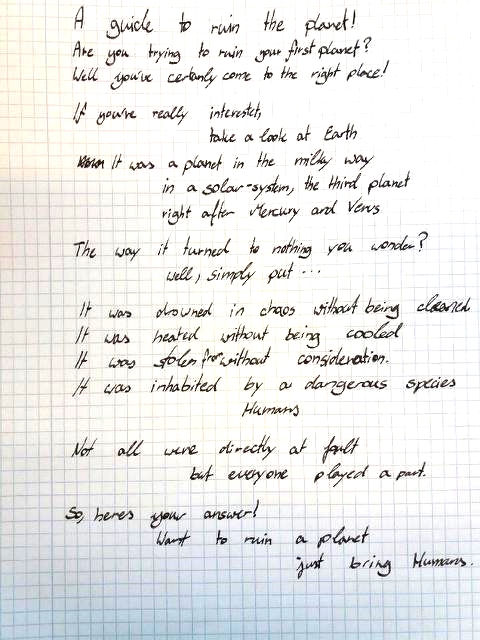 A guide to ruin the planet!
Are you trying to ruin your first planet?
Well you've certanly come to the right place!
If you're really interestet,
take a look at Earth
It was a planet in the milky way
in a solar-system, the third planet
right after Mercury and Venus
The way it turned to nothing you wonder?
well, simply put ...
It was drowned in chaos without being cleaned
It was heated without being cooled
It was stolen from without consideration.
It was inhabited by a dangerous species
Humans
Not all were directly at fault
but everyone played a part.
So, heres your answer!
Want to ruin a planet
just bring Humans.